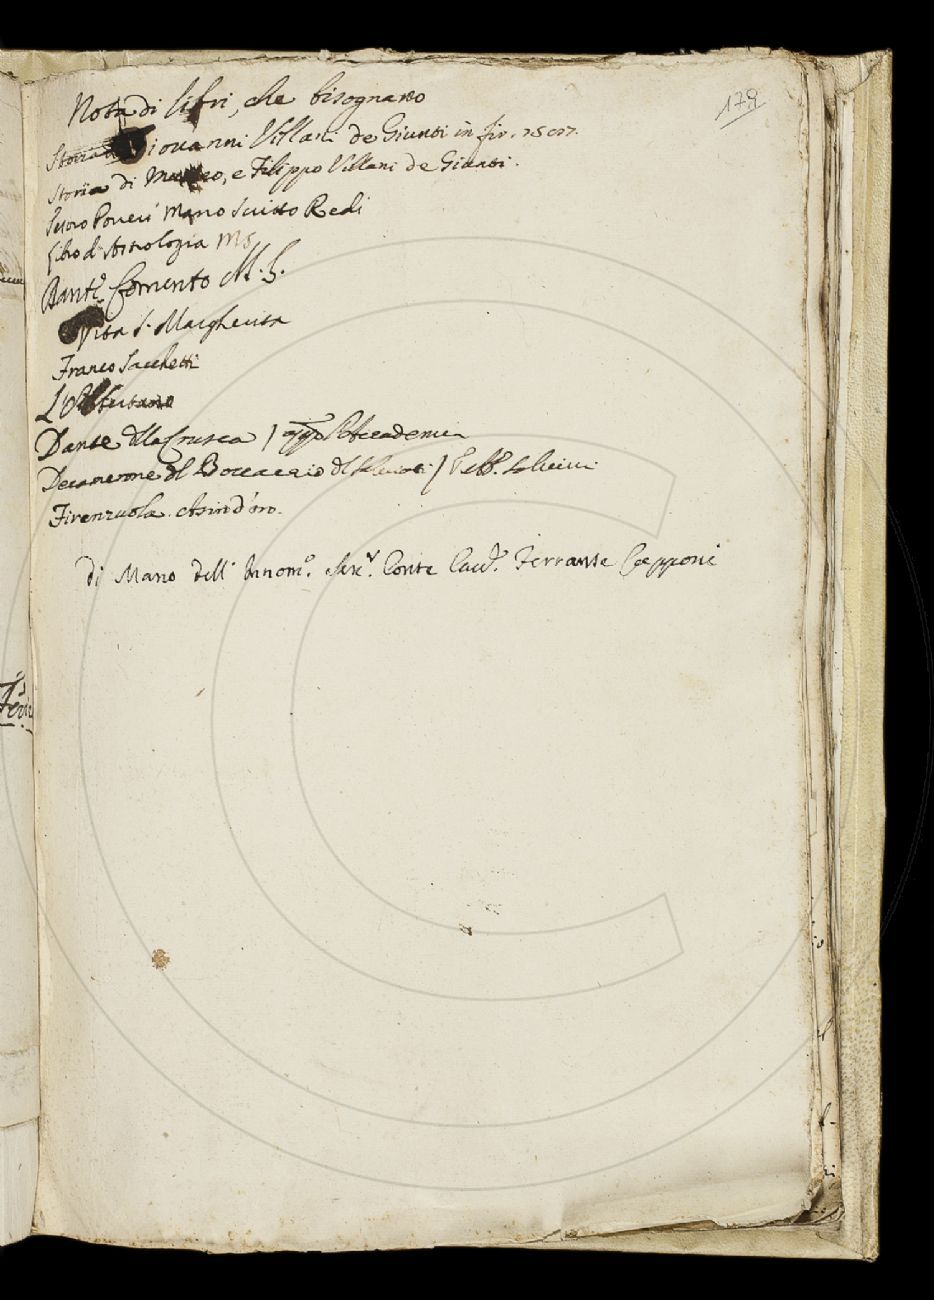 179
Nota di libri, che bisognano
Storia di Giovanni Villani de Giunti in fir.
Storia di Matteo, e Filippo Villani de Giunti.
Mano Scritto Redi
Libro d'Astrologia MS
Comento M.S.
Vita S. Margherita
Franco Sacchetti
Dante della Crusca / Accademia
Decamerone del Boccaccio del Salviati /
Firenzuola. Asin d'oro.
di Mano dell' Innom.º Sen.r Conte Cav.r Ferrante Capponi